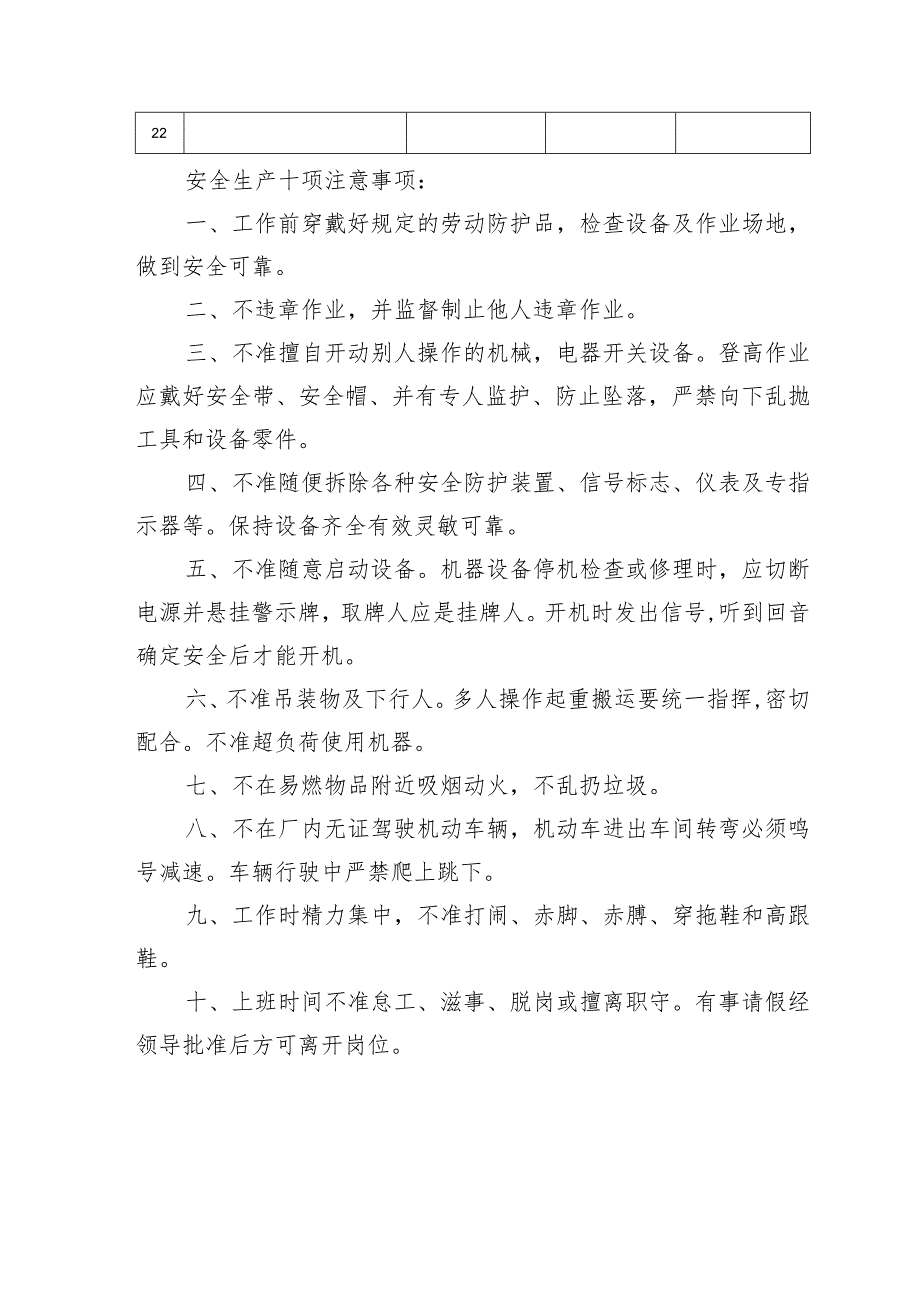 22
安全生产十项注意事项：
一、工作前穿戴好规定的劳动防护品，检查设备及作业场地，
做到安全可靠。
二、不违章作业，并监督制止他人违章作业。
三、不准擅自开动别人操作的机械，电器开关设备。登高作业
应戴好安全带、安全帽、并有专人监护、防止坠落，严禁向下乱抛
工具和设备零件。
四、不准随便拆除各种安全防护装置、信号标志、仪表及专指
示器等。保持设备齐全有效灵敏可靠。
五、不准随意启动设备。机器设备停机检查或修理时，应切断
电源并悬挂警示牌，取牌人应是挂牌人。开机时发出信号,听到回音
确定安全后才能开机。
六、不准吊装物及下行人。多人操作起重搬运要统一指挥,密切
配合。不准超负荷使用机器。
七、不在易燃物品附近吸烟动火，不乱扔垃圾。
八、不在厂内无证驾驶机动车辆，机动车进出车间转弯必须鸣
号减速。车辆行驶中严禁爬上跳下。
九、工作时精力集中，不准打闹、赤脚、赤膊、穿拖鞋和高跟
鞋。
十、上班时间不准怠工、滋事、脱岗或擅离职守。有事请假经
领导批准后方可离开岗位。